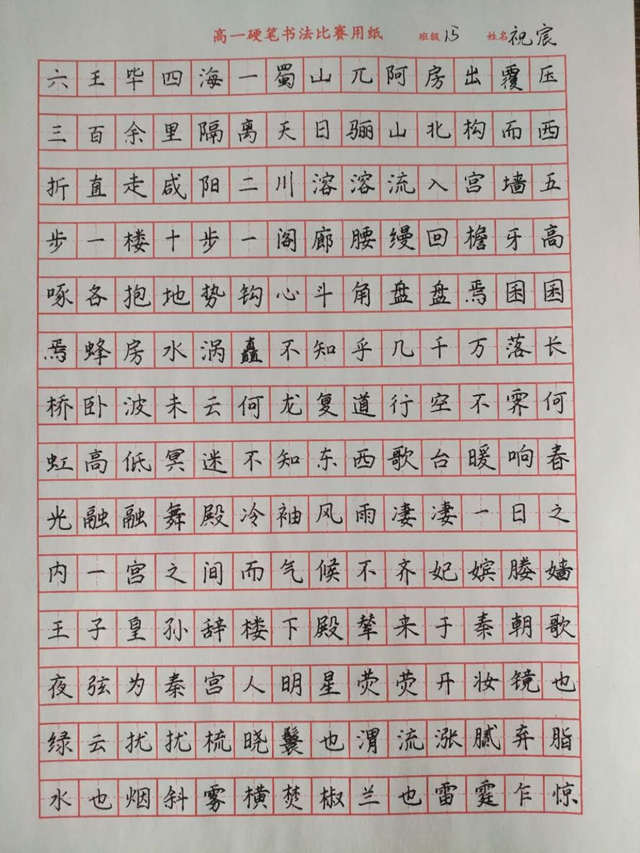 高一硬笔书法比赛用纸 班级 13 姓名 祝宸
六王毕四海一蜀山兀阿房出覆压
三百余里隔离天日骊山北构而西
折直走咸阳二川溶溶流入宫墙五
步一楼十步一阁廊腰缦回檐牙高
啄各抱地势钩心斗角盘盘焉囷囷
焉蜂房水涡矗不知乎几千万落长
桥卧波未云何龙复道行空不霁何
虹高低冥迷不知东西歌台暖响春
光融融舞殿冷袖风雨凄凄一日之
内一宫之间而气候不齐妃嫔媵嫱
王子皇孙辞楼下殿辇来于秦朝歌
夜弦为秦宫人明星荧荧开妆镜也
绿云扰扰梳晓鬟也渭流涨腻弃脂
水也烟斜雾横焚椒兰也雷霆乍惊